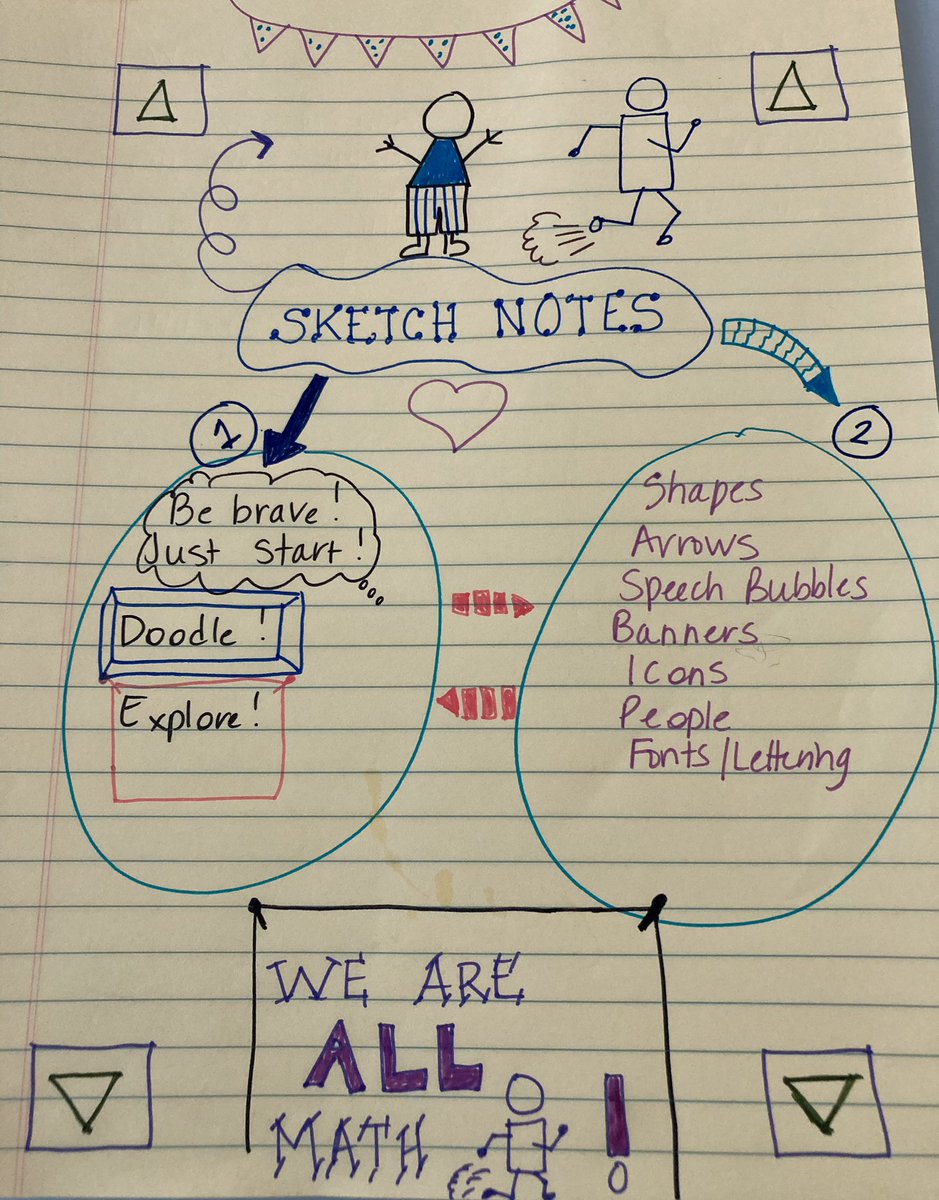 SKETCH NOTES
1
Be brave!
Just start!
Doodle!
Explore!
2
Shapes
Arrows
Speech Bubbles
Banners
Icons
People
Fonts/Lettering
WE ARE
ALL
MATH !